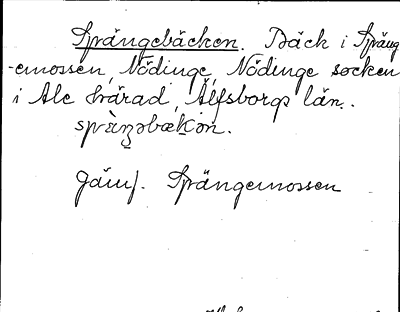 Sprängebäcken. Bäck i Spräng
-emossen, Nödinge, Nödinge socken
i Ale härad, Älfsborgs län.
spràŋəbækən.
Jämf. Sprängemossen